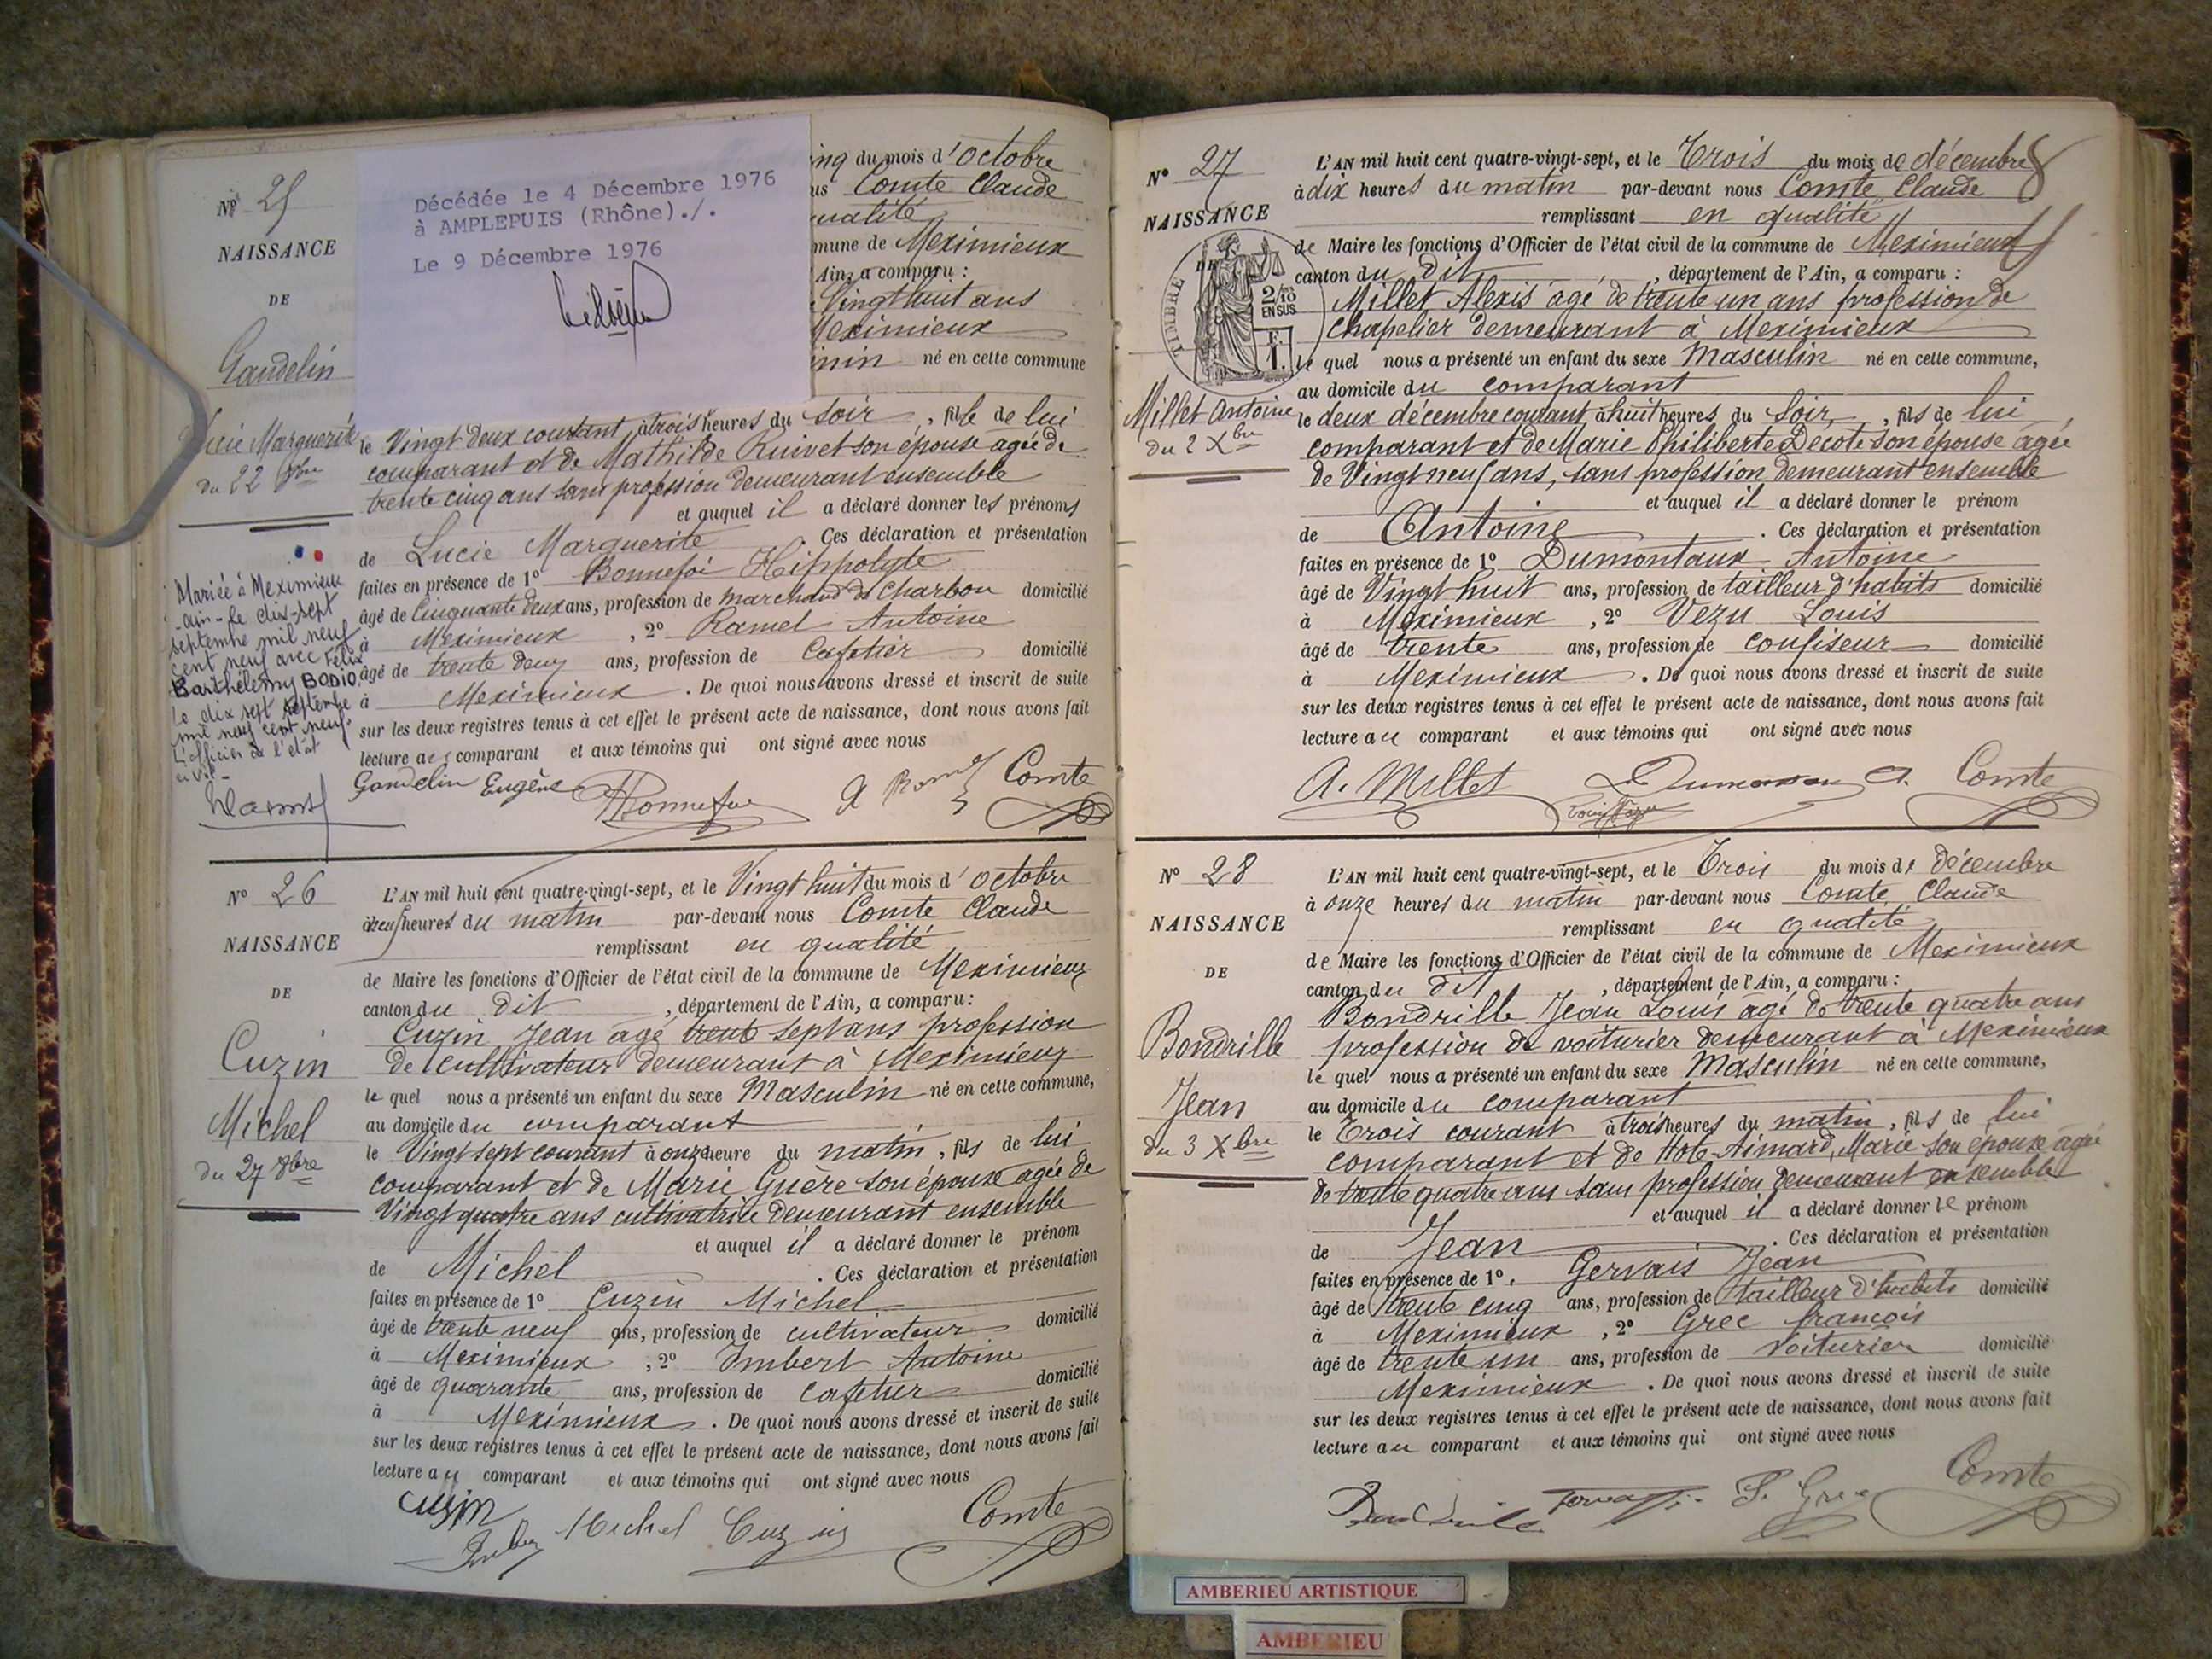 N° 25
NAISSANCE
DE
Gandelin
Lucie Marguerite
du 22 8bre
Mariée à Meximieux
-ain- le dix-sept
septembre mil neuf
cent neuf avec Félix
Barthélemy BODIO.
Le dix sept septembre
mil neuf cent neuf.
L'officier de l'état
civil-
Décédée le 4 Décembre 1976
à AMPLEPUIS (Rhône)./.
Le 9 Décembre 1976
inq du mois d'octobre
us Comte Claude
qualité
mune de Meximieux
Ain, a comparu :
Vingt huit ans
Meximieux
inin né en cette commune
le Vingt deux courant, à trois heures du soir, fille de lui
comparant et de Mathilde Ruivet son épouse agée de
trente cinq ans sans profession demeurant ensemble
et auquel il a déclaré donner les prénoms
de Lucie Marguerite . Ces déclaration et présentation
faites en présence de 1° Bonnefoi Hippolyte
âgé de Cinquante deux ans, profession de marchand de Charbon domicilié
à Meximieux , 2° Ramel Antoine
âgé de trente deux ans, profession de Cafetier domicilié
à Meximieux . De quoi nous avons dressé et inscrit de suite
sur les deux registres tenus à cet effet le présent acte de naissance, dont nous avons fait
lecture au comparant et aux témoins qui ont signé avec nous
Gandelin Eugène Comte
N° 26
NAISSANCE
DE
Cuzin
Michel
du 27 8bre
L'AN mil huit cent quatre-vingt-sept, et le Vingt huit du mois d'octobre
à neuf heures du matin par-devant nous Comte Claude
remplissant en qualité
de Maire les fonctions d'Officier de l'état civil de la commune de Meximieux
canton du dit , département de l'Ain, a comparu :
Cuzin Jean agé trente sept ans profession
de cultivateur demeurant à Meximieux
le quel nous a présenté un enfant du sexe Masculin né en cette commune,
au domicile du comparant
le Vingt sept courant à onze heure du matin, fils de lui
comparant et de Marie Guère son épouse agée de
Vingt quatre ans cultivatrice demeurant ensemble
et auquel il a déclaré donner le prénom
de Michel . Ces déclaration et présentation
faites en présence de 1° Cuzin Michel
âgé de trente neuf ans, profession de cultivateur domicilié
à Meximieux , 2° Imbert Antoine
âgé de quarante ans, profession de cafetier domicilié
à Meximieux . De quoi nous avons dressé et inscrit de suite
sur les deux registres tenus à cet effet le présent acte de naissance, dont nous avons fait
lecture au comparant et aux témoins qui ont signé avec nous
Cuzin Michel Cuzin Comte
N° 27
NAISSANCE
DE
TIMBRE
2/10
EN SUS
F.
1.
Millet Antoine
du 2 Xbre
L'AN mil huit cent quatre-vingt-sept, et le Trois du mois de décembre
à dix heures du matin par-devant nous Comte Claude
remplissant en qualité
de Maire les fonctions d'Officier de l'état civil de la commune de Meximieux
canton du dit , département de l'Ain, a comparu :
Millet Alexis agé de trente un ans profession de
Chapelier demeurant à Meximieux
le quel nous a présenté un enfant du sexe Masculin né en cette commune,
au domicile du comparant
le deux décembre courant à huit heures du Soir, fils de lui
comparant et de Marie Philiberte Decote son épouse agée
de Vingt neuf ans, sans profession demeurant ensemble
et auquel il a déclaré donner le prénom
de Antoine . Ces déclaration et présentation
faites en présence de 1° Dumontaux Antoine
âgé de Vingt huit ans, profession de tailleur d'habits domicilié
à Meximieux , 2° Vezu Louis
âgé de trente ans, profession de confiseur domicilié
à Meximieux . De quoi nous avons dressé et inscrit de suite
sur les deux registres tenus à cet effet le présent acte de naissance, dont nous avons fait
lecture au comparant et aux témoins qui ont signé avec nous
A. Millet Comte
N° 28
NAISSANCE
DE
Bondrille
Jean
du 3 Xbre
L'AN mil huit cent quatre-vingt-sept, et le Trois du mois de décembre
à onze heures du matin par-devant nous Comte Claude
remplissant en qualité
de Maire les fonctions d'Officier de l'état civil de la commune de Meximieux
canton du dit , département de l'Ain, a comparu :
Bondrille Jean Louis agé de trente quatre ans
profession de voiturier demeurant à Meximieux
le quel nous a présenté un enfant du sexe Masculin né en cette commune,
au domicile du comparant
le Trois courant à trois heures du matin, fils de lui
comparant et de Hote-Aimard, Marie son épouse agée
de trente quatre ans sans profession demeurant ensemble
et auquel il a déclaré donner le prénom
de Jean . Ces déclaration et présentation
faites en présence de 1° Gervais Jean
âgé de trente cinq ans, profession de tailleur d'habits domicilié
à Meximieux , 2° Grec françois
âgé de trente un ans, profession de Voiturier domicilié
Meximieux . De quoi nous avons dressé et inscrit de suite
sur les deux registres tenus à cet effet le présent acte de naissance, dont nous avons fait
lecture au comparant et aux témoins qui ont signé avec nous
Comte
AMBERIEU ARTISTIQUE
AMBERIEU